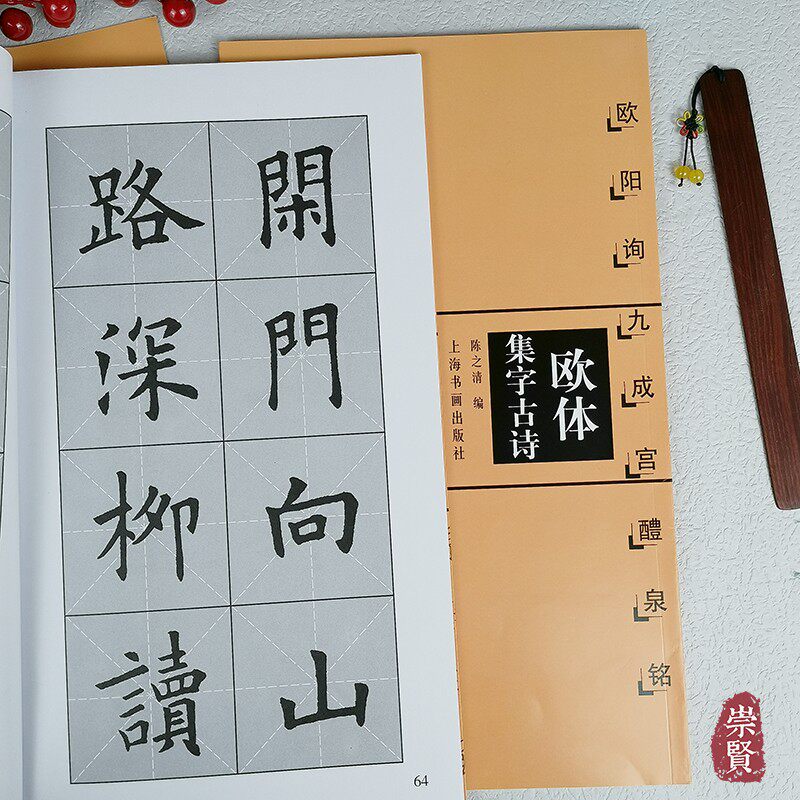 閑門向山
路深柳讀
64
欧阳询九成宫醴泉铭
欧体
集字古诗
陈之清 编
上海书画出版社
崇賢